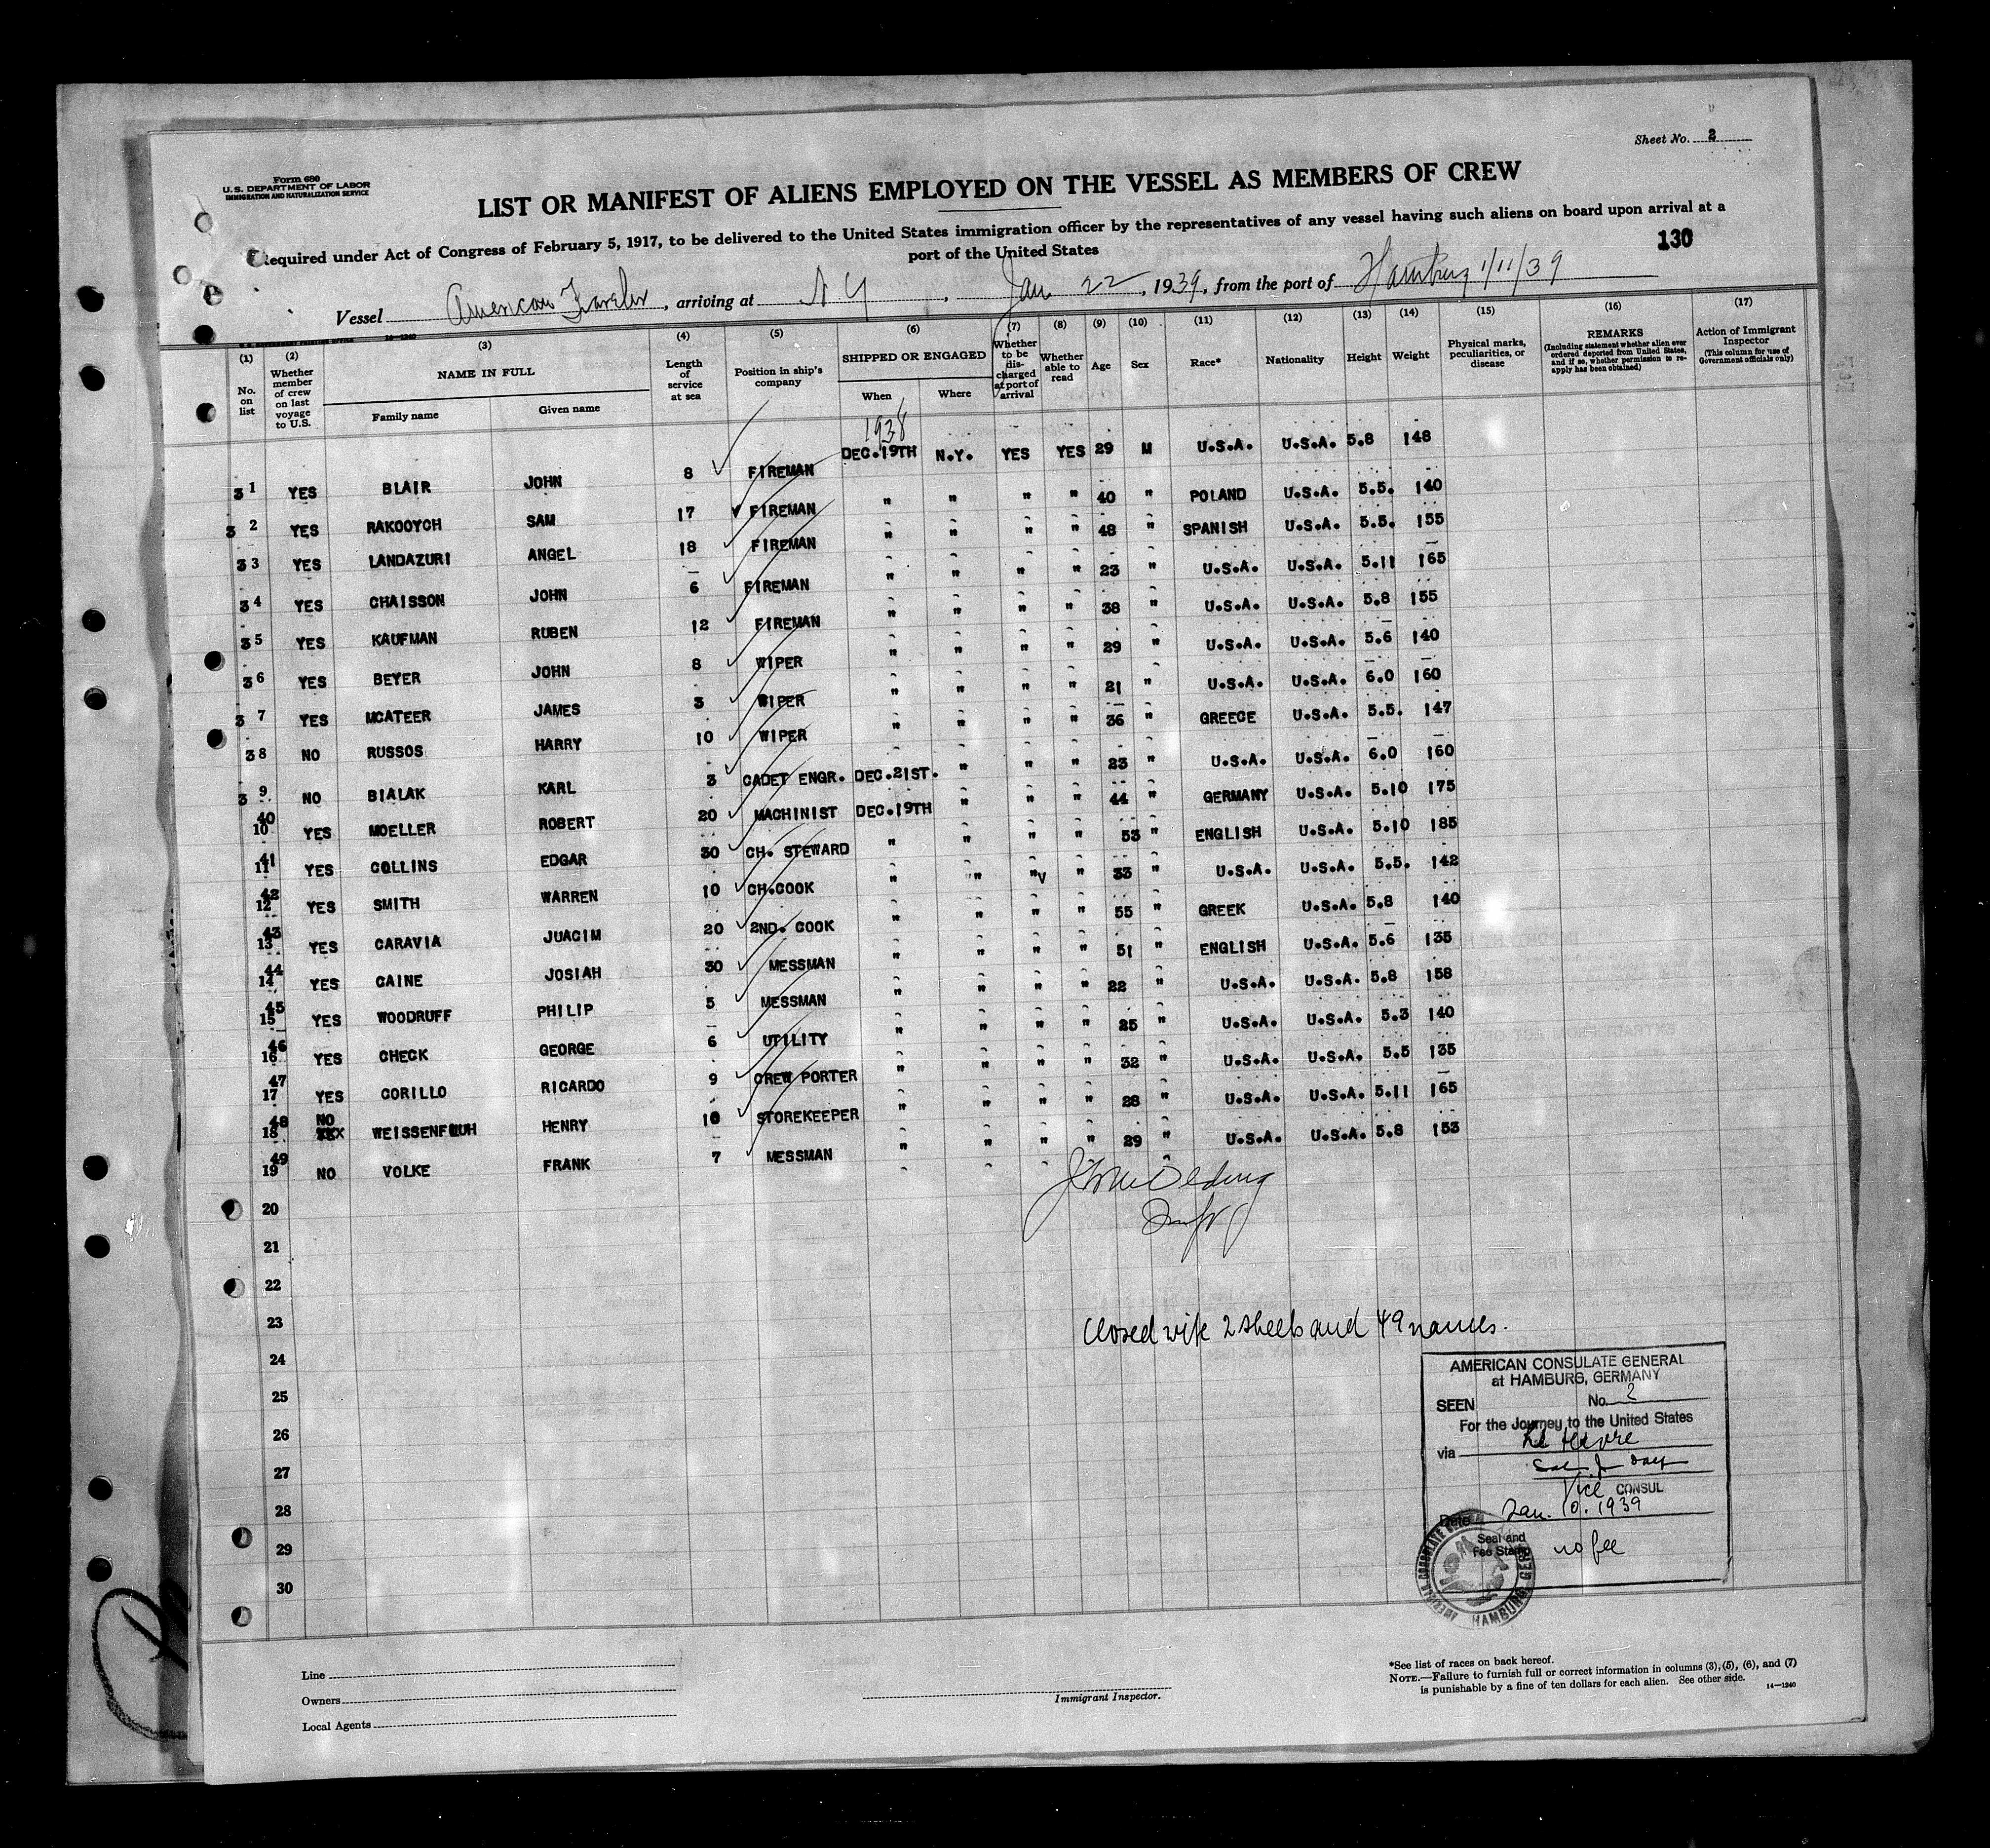 Sheet No. 2
Form 680
U.S. DEPARTMENT OF LABOR
IMMIGRATION AND NATURALIZATION SERVICE
LIST OR MANIFEST OF ALIENS EMPLOYED ON THE VESSEL AS MEMBERS OF CREW
Required under Act of Congress of February 5, 1917, to be delivered to the United States immigration officer by the representatives of any vessel having such aliens on board upon arrival at a
port of the United States
130
Vessel American Traveler, arriving at N Y, Jan 22, 1939, from the port of Hamburg 1/11/39
(1) (2) (3) (4) (5) (6) (7) (8) (9) (10) (11) (12) (13) (14) (15) (16) (17)
No. on list
Whether member of crew on last voyage to U.S.
NAME IN FULL
Family name Given name
Length of service at sea
Position in ship's company
SHIPPED OR ENGAGED
When Where
Whether to be discharged at port of arrival
Whether able to read
Age Sex Race* Nationality Height Weight
Physical marks, peculiarities, or disease
REMARKS
(Including statement whether alien ever ordered deported from United States, and if so, whether permission to reapply has been obtained)
Action of Immigrant Inspector
(This column for use of Government officials only)
1938
3 1 YES BLAIR JOHN 8 FIREMAN DEC.19TH N.Y. YES YES 29 M U.S.A. U.S.A. 5.8 148
3 2 YES RAKOOYCH SAM 17 FIREMAN " " " " 40 " POLAND U.S.A. 5.5. 140
3 3 YES LANDAZURI ANGEL 18 FIREMAN " " " " 48 " SPANISH U.S.A. 5.5. 155
3 4 YES CHAISSON JOHN 6 FIREMAN " " " " 23 " U.S.A. U.S.A. 5.11 165
3 5 YES KAUFMAN RUBEN 12 FIREMAN " " " " 38 " U.S.A. U.S.A. 5.8 155
3 6 YES BEYER JOHN 8 WIPER " " " " 29 " U.S.A. U.S.A. 5.6 140
3 7 YES MCATEER JAMES 3 WIPER " " " " 21 " U.S.A. U.S.A. 6.0 160
3 8 NO RUSSOS HARRY 10 WIPER " " " " 36 " GREECE U.S.A. 5.5. 147
3 9 NO BIALAK KARL 3 CADET ENGR. DEC.21ST. " " " 23 " U.S.A. U.S.A. 6.0 160
40 10 YES MOELLER ROBERT 20 MACHINIST DEC.19TH " " " 44 " GERMANY U.S.A. 5.10 175
41 11 YES COLLINS EDGAR 30 CH. STEWARD " " " " 53 " ENGLISH U.S.A. 5.10 185
42 12 YES SMITH WARREN 10 CH.COOK " " " " 33 " U.S.A. U.S.A. 5.5. 142
43 13 YES CARAVIA JUACIM 20 2ND. COOK " " " " 55 " GREEK U.S.A. 5.8 140
44 14 YES CAINE JOSIAH 30 MESSMAN " " " " 51 " ENGLISH U.S.A. 5.6 135
45 15 YES WOODRUFF PHILIP 5 MESSMAN " " " " 22 " U.S.A. U.S.A. 5.8 158
46 16 YES CHECK GEORGE 6 UTILITY " " " " 25 " U.S.A. U.S.A. 5.3 140
47 17 YES CORILLO RICARDO 9 CREW PORTER " " " " 32 " U.S.A. U.S.A. 5.5 135
48 18 NO WEISSENFLUH HENRY 10 STOREKEEPER " " " " 28 " U.S.A. U.S.A. 5.11 165
49 19 NO VOLKE FRANK 7 MESSMAN " " " " 29 " U.S.A. U.S.A. 5.8 153
20
21
22
23
24
25
26
27
28
29
30
Closed with 2 sheets and 49 names.
AMERICAN CONSULATE GENERAL
at HAMBURG, GERMANY
SEEN No. 2
For the Journey to the United States
via Le Havre
Vice CONSUL
Date Jan. 10. 1939
Seal and
Fee Stamp no fee
AMERICAN CONSULATE GENERAL HAMBURG, GERMANY
Line
Owners
Local Agents
Immigrant Inspector.
*See list of races on back hereof.
NOTE.—Failure to furnish full or correct information in columns (3), (5), (6), and (7)
is punishable by a fine of ten dollars for each alien. See other side.
14—1240